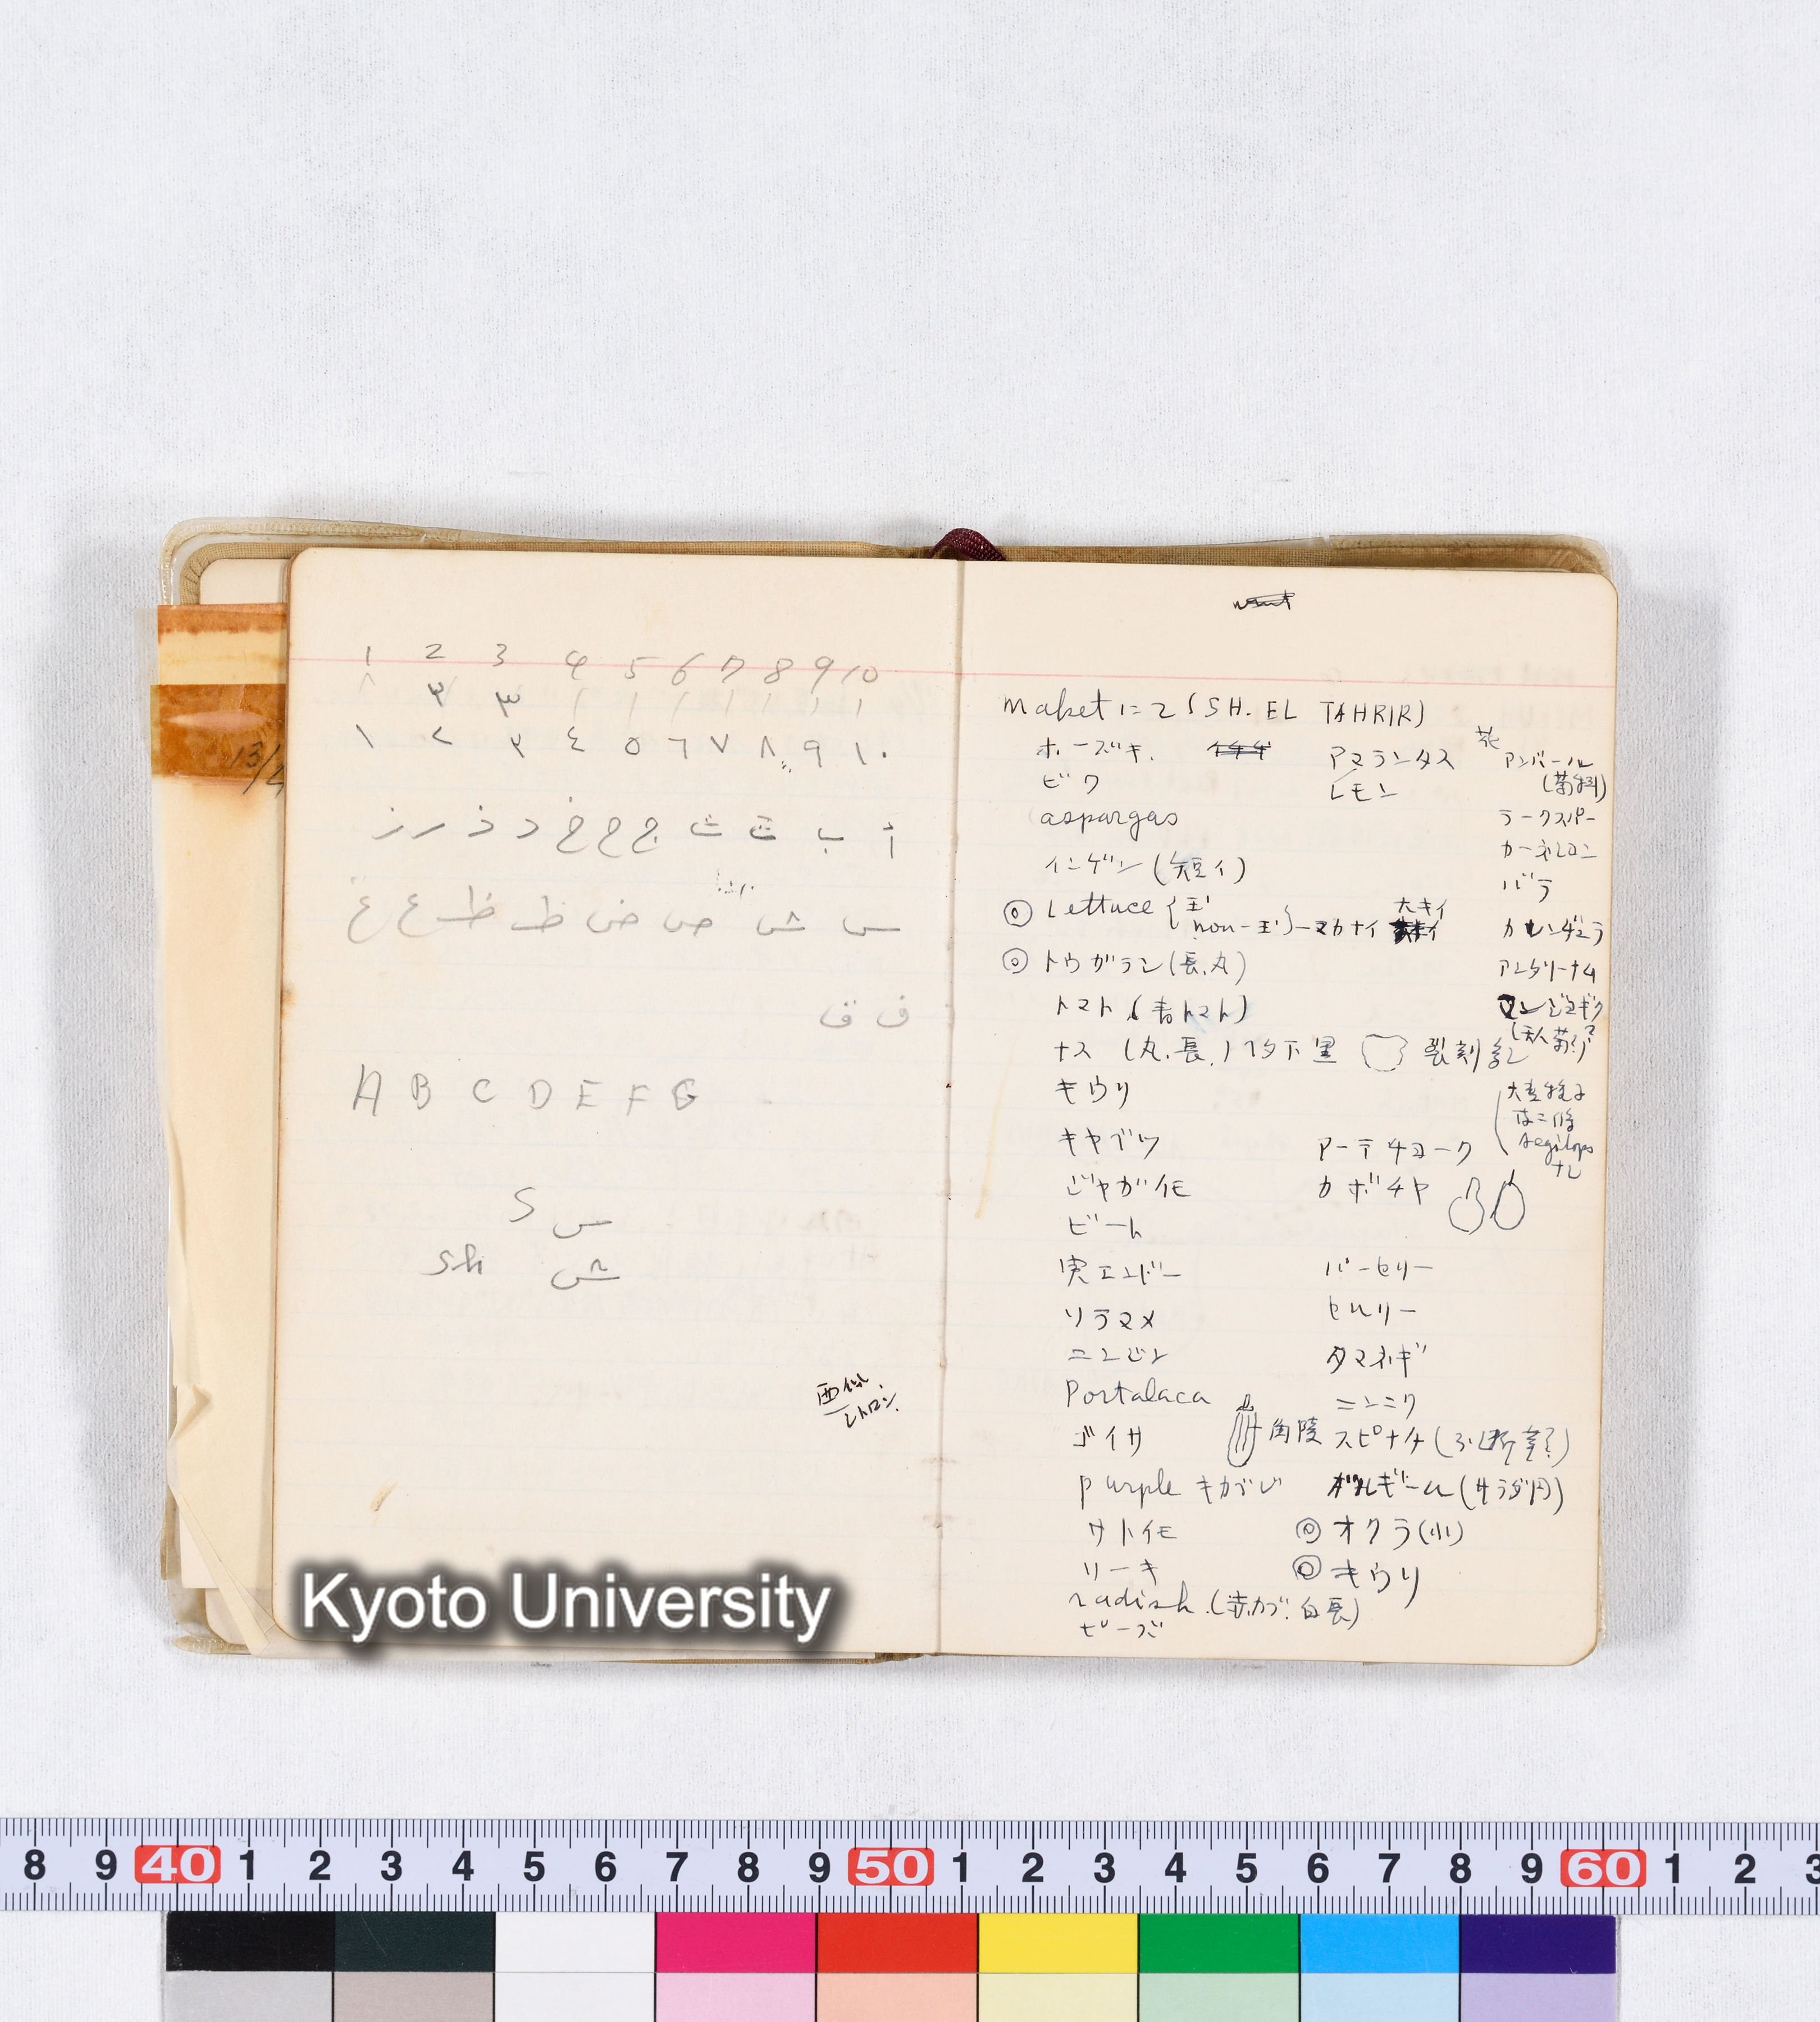 1 2 3 4 5 6 7 8 9 10
١ ٢ ٣ ٤ ٥ ٦ ٧ ٨ ٩ ١٠
أ ب ت ث ج ح خ د ذ ر ز
س ش ص ض ط ظ ع غ
ف ق
A B C D E F G
S س
sh ش
13/4
Kyoto University
maket にて (SH. EL TAHRIR)
ホーズキ. アマランタス
ビワ レモン
aspargas
インゲン (短イ)
◎ Lettuce { 玉 non-玉 }
大キイ
◎ トウガラシ (長.丸)
トマト (青トマト)
ナス (丸.長.)
キウリ
キャベツ アーテチョーク
ジャガイモ カボチャ
ビート
実エンドー パーセリー
ソラマメ セルリー
ニンジン タマネギ
Portalaca ニンニク
ゴイサ 角陵 スピナチ
purple キカラシ (サラダ円)
サトイモ ◎ オクラ(小)
リーキ ◎ キウリ
radish. (赤カブ. 白長)
ピーズ
花 アンバール
(菊科)
ラークスパー
カーネーション
バラ
カレンデュラ
アンタリーナム
大麦穂子
は二條
Aegilops
ナシ
8 9 40 1 2 3 4 5 6 7 8 9 50 1 2 3 4 5 6 7 8 9 60 1 2 3